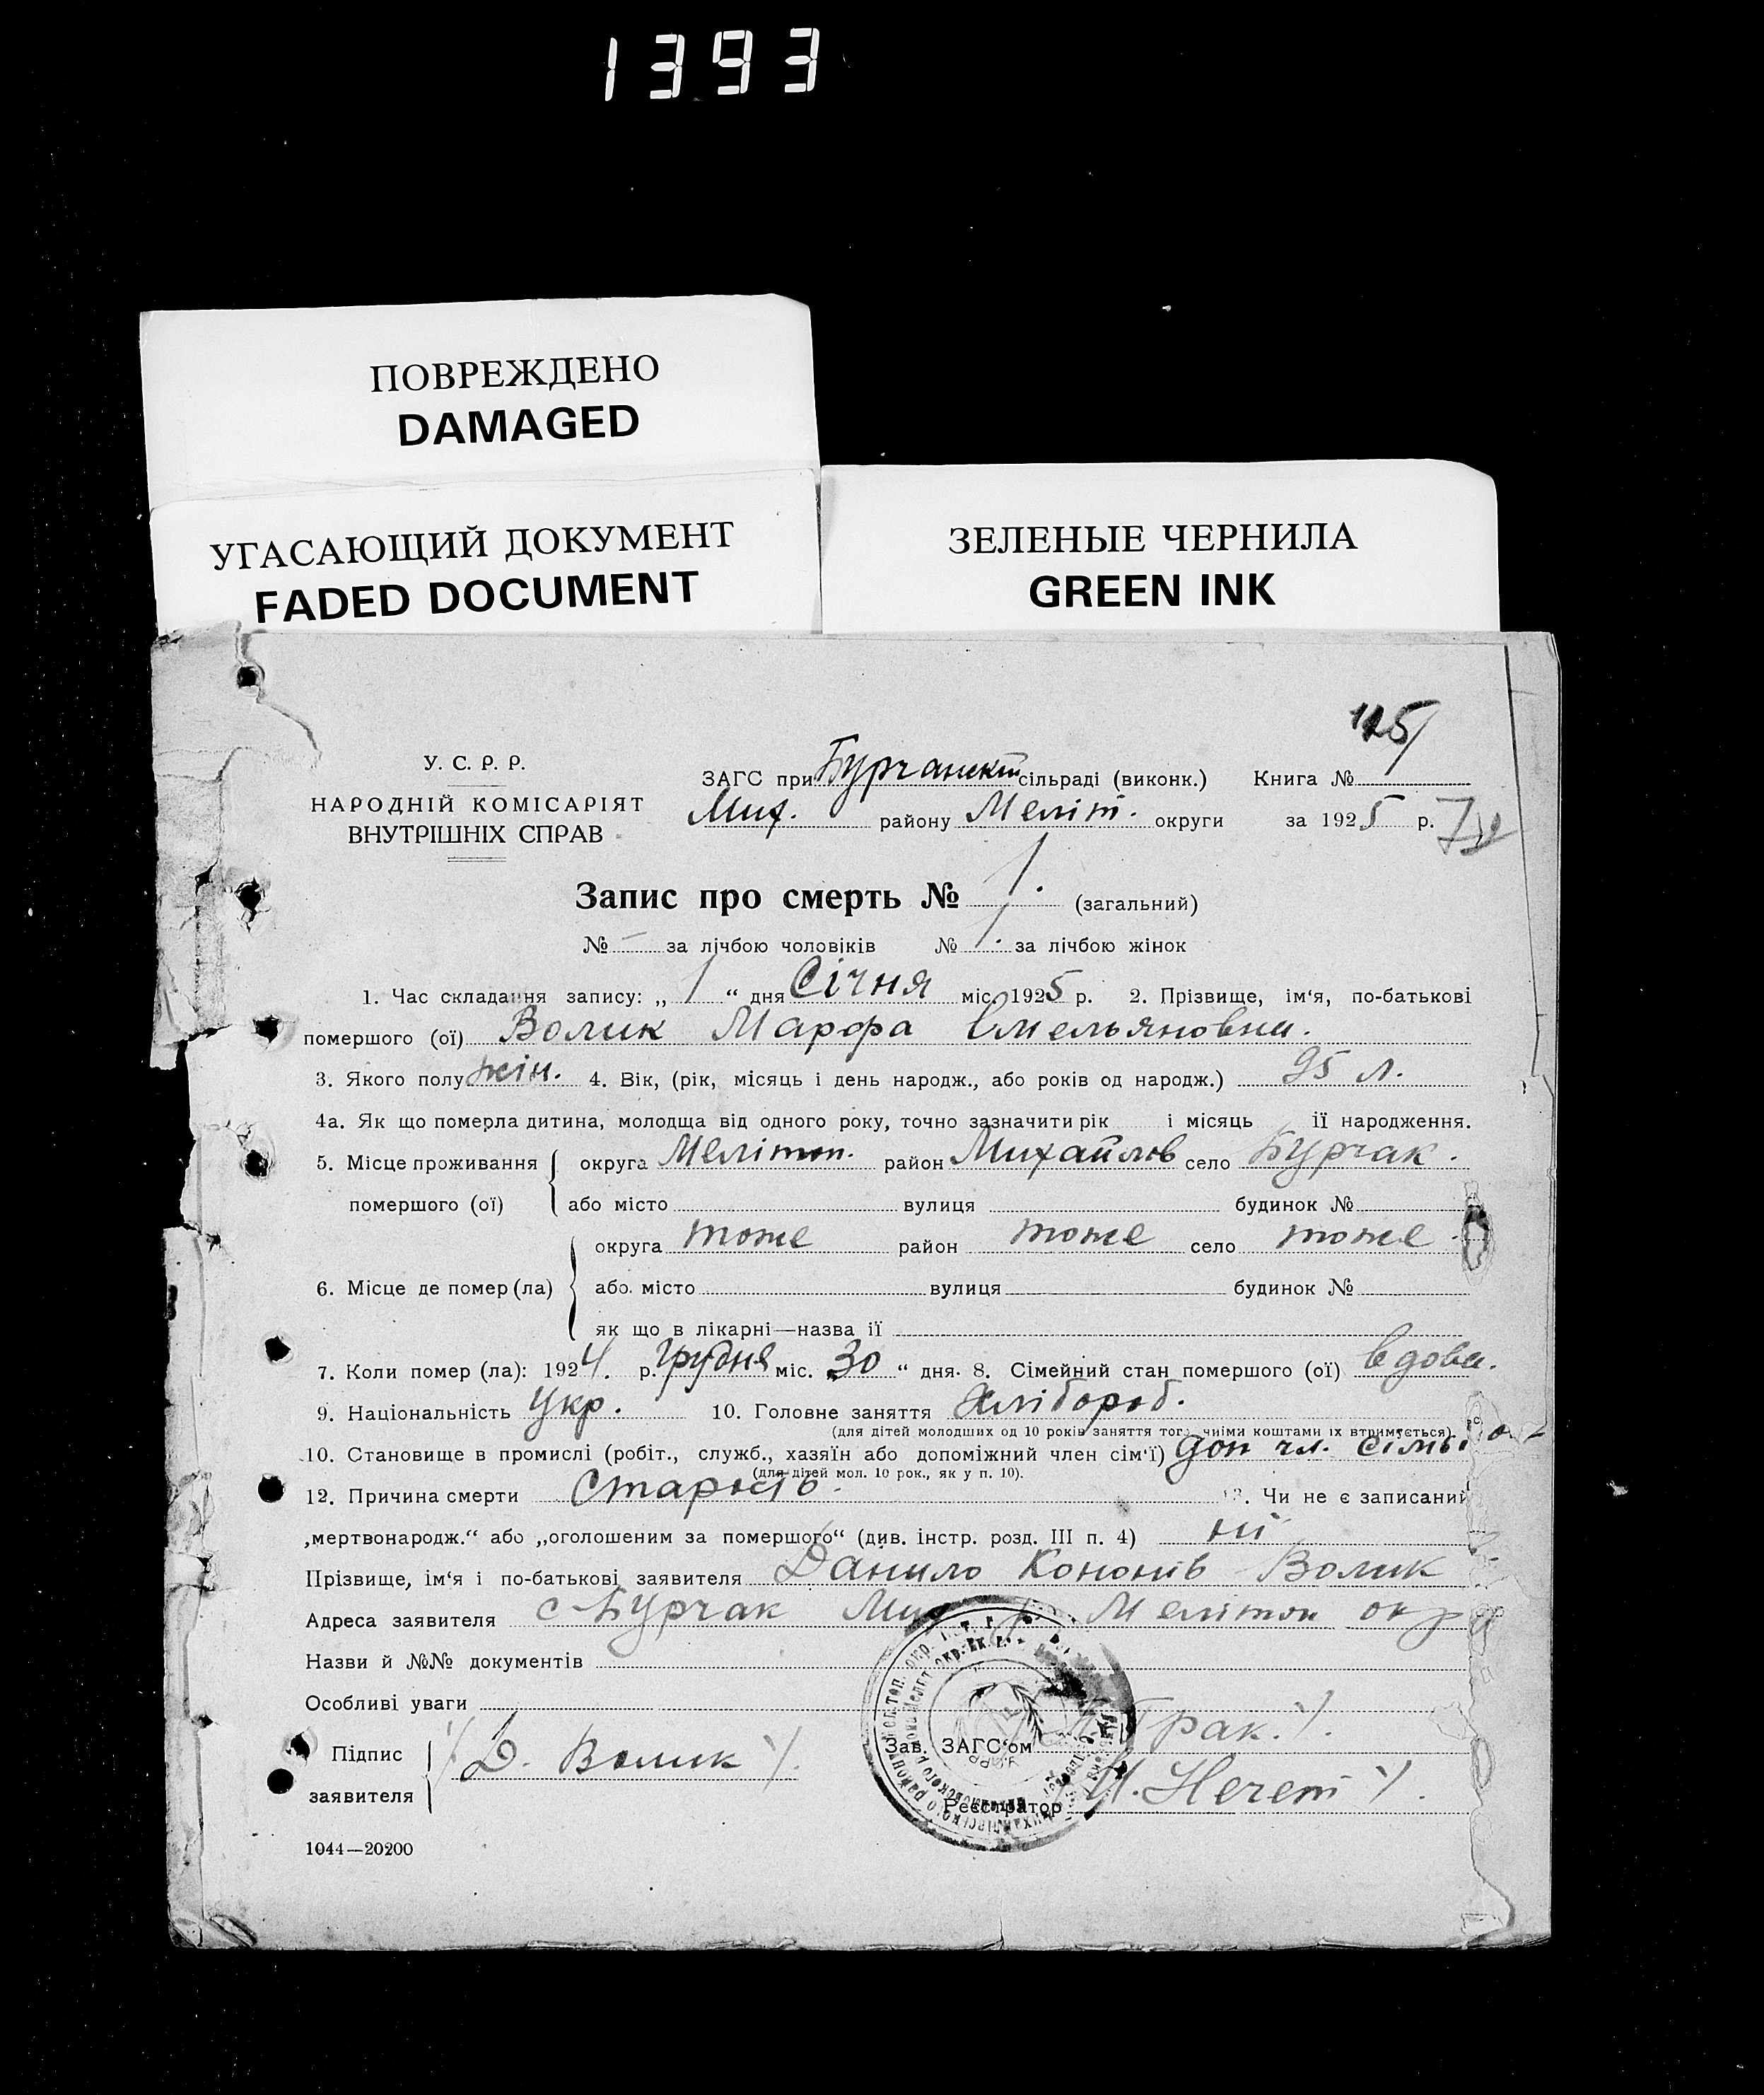 1393
ПОВРЕЖДЕНО
DAMAGED
УГАСАЮЩИЙ ДОКУМЕНТ
FADED DOCUMENT
ЗЕЛЕНЫЕ ЧЕРНИЛА
GREEN INK
У. С. Р. Р.
НАРОДНІЙ КОМІСАРІЯТ
ВНУТРІШНІХ СПРАВ
ЗАГС при сільраді (виконк.) Книга №
Мих. району Меліт. округи за 1925 р.
Запис про смерть № 1. (загальний)
№ — за лічбою чоловіків № 1. за лічбою жінок
1. Час складання запису: „ 1 “ дня Січня міс. 1925 р. 2. Прізвище, ім‘я, по-батькові
помершого (ої) Волик Марфа Емельяновна.
3. Якого полу жін. 4. Вік, (рік, місяць і день народж., або років од народж.) 95 л.
4а. Як що померла дитина, молодща від одного року, точно зазначити рік і місяць її народження.
5. Місце проживання округа Мелітоп. район Михайлов село Бурчак.
помершого (ої) або місто вулиця будинок №
округа тоже район тоже село тоже
6. Місце де помер (ла) або місто вулиця будинок №
як що в лікарні—назва її
7. Коли помер (ла): 1924. р. грудня міс. „30“ дня. 8. Сімейний стан помершого (ої) вдова.
9. Національність Укр. 10. Головне заняття Хлібороб.
(для дітей молодших од 10 років заняття того, чиїми коштами їх втримується).
10. Становище в промислі (робіт., служб., хазяїн або допоміжний член сім‘ї) доп чл. сімьї
(для дітей мол. 10 рок., як у п. 10).
12. Причина смерти Старость. 13. Чи не є записаний
„мертвонародж.“ або „оголошеним за помершого“ (див. інстр. розд. III п. 4) ні
Прізвище, ім‘я і по-батькові заявителя Данило Кононів Волик
Адреса заявителя с-Бурчак Мих р Мелітоп окр
Назви й №№ документів
Особливі уваги
Підпис
заявителя
/Д. Волик/.
Зав. ЗАГС‘ом
Реєстратор
1044—20200